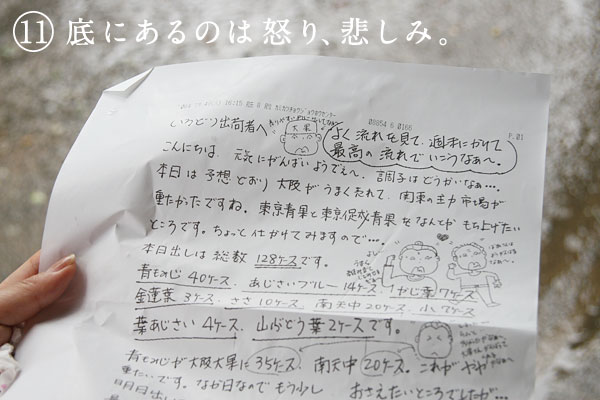 ⑪ 底にあるのは怒り、悲しみ。
P.01
いろどり出荷者へ
大果
よく流れを見て、週末にかけて
最高の流れでいこうなぁ〜。
こんにちは 元気にがんばいよでぇへ、調子はどうかいなぁ…。
本日は予想どおり大阪がうまくたれて、関東の主力市場が
重たかたですね。東京青果と東京促成青果をなんとかもち上げたい
ところです。ちょっと仕かけてみますので…。
本日出しは総数 128ケースです。
青もみじ 40ケース、あじさいブルー 14ケース、かじ葉 7ケース
金蓮葉 3ケース、ささ 10ケース、南天中 20ケース、小
葉あじさい 4ケース、山ぶどう葉 2ケースです。
青もみじが大阪大果に 35ケース、南天中 20ケース。これがやや
重たいです。なか日なのでもう少し おさえたいところでしたが…